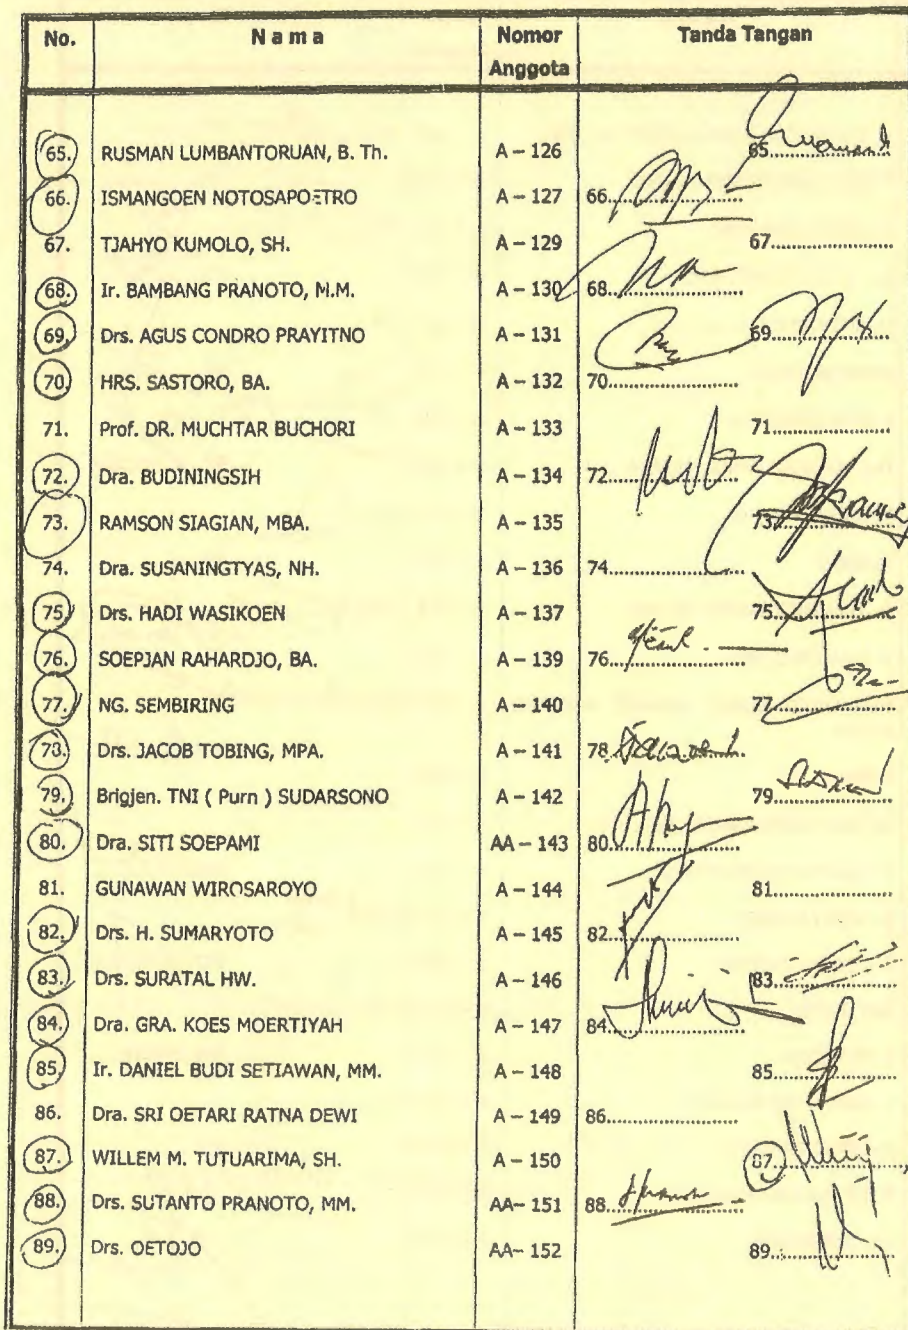 No. Nama Nomor Anggota Tanda Tangan
65. RUSMAN LUMBANTORUAN, B. Th. A – 126 65
66. ISMANGOEN NOTOSAPOETRO A – 127 66
67. TJAHYO KUMOLO, SH. A – 129 67
68. Ir. BAMBANG PRANOTO, M.M. A – 130 68
69. Drs. AGUS CONDRO PRAYITNO A – 131 69
70. HRS. SASTORO, BA. A – 132 70
71. Prof. DR. MUCHTAR BUCHORI A – 133 71
72. Dra. BUDININGSIH A – 134 72
73. RAMSON SIAGIAN, MBA. A – 135 73
74. Dra. SUSANINGTYAS, NH. A – 136 74
75. Drs. HADI WASIKOEN A – 137 75
76. SOEPJAN RAHARDJO, BA. A – 139 76
77. NG. SEMBIRING A – 140 77
78. Drs. JACOB TOBING, MPA. A – 141 78
79. Brigjen. TNI ( Purn ) SUDARSONO A – 142 79
80. Dra. SITI SOEPAMI AA – 143 80
81. GUNAWAN WIROSAROYO A – 144 81
82. Drs. H. SUMARYOTO A – 145 82
83. Drs. SURATAL HW. A – 146 83
84. Dra. GRA. KOES MOERTIYAH A – 147 84
85. Ir. DANIEL BUDI SETIAWAN, MM. A – 148 85
86. Dra. SRI OETARI RATNA DEWI A – 149 86
87. WILLEM M. TUTUARIMA, SH. A – 150 87
88. Drs. SUTANTO PRANOTO, MM. AA– 151 88
89. Drs. OETOJO AA– 152 89